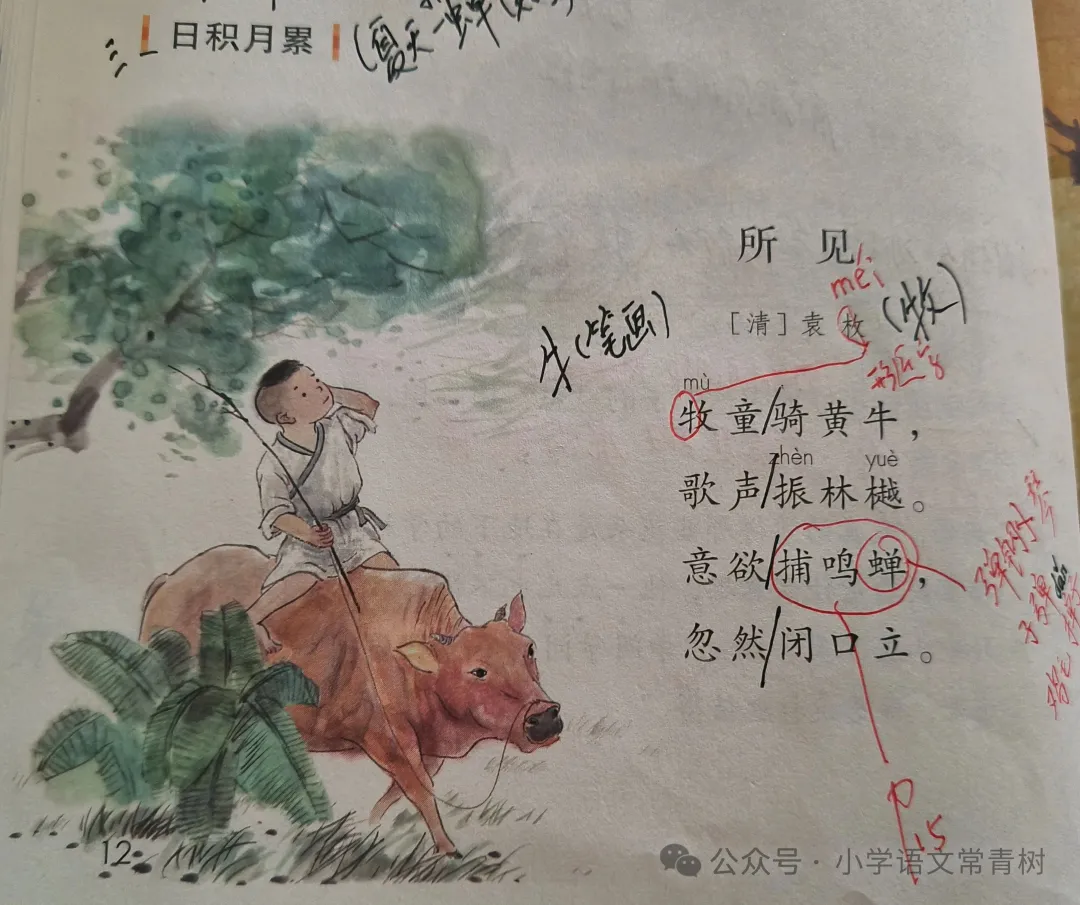 三
日积月累
(夏天-蝉
所见
méi
[清]袁枚
(牧)
牛(笔画)
形近字
mù
牧童/骑黄牛，
zhèn yuè
歌声/振林樾。
意欲/捕鸣蝉，
忽然/闭口立。
弹钢琴
子弹
P15
12
公众号·小学语文常青树